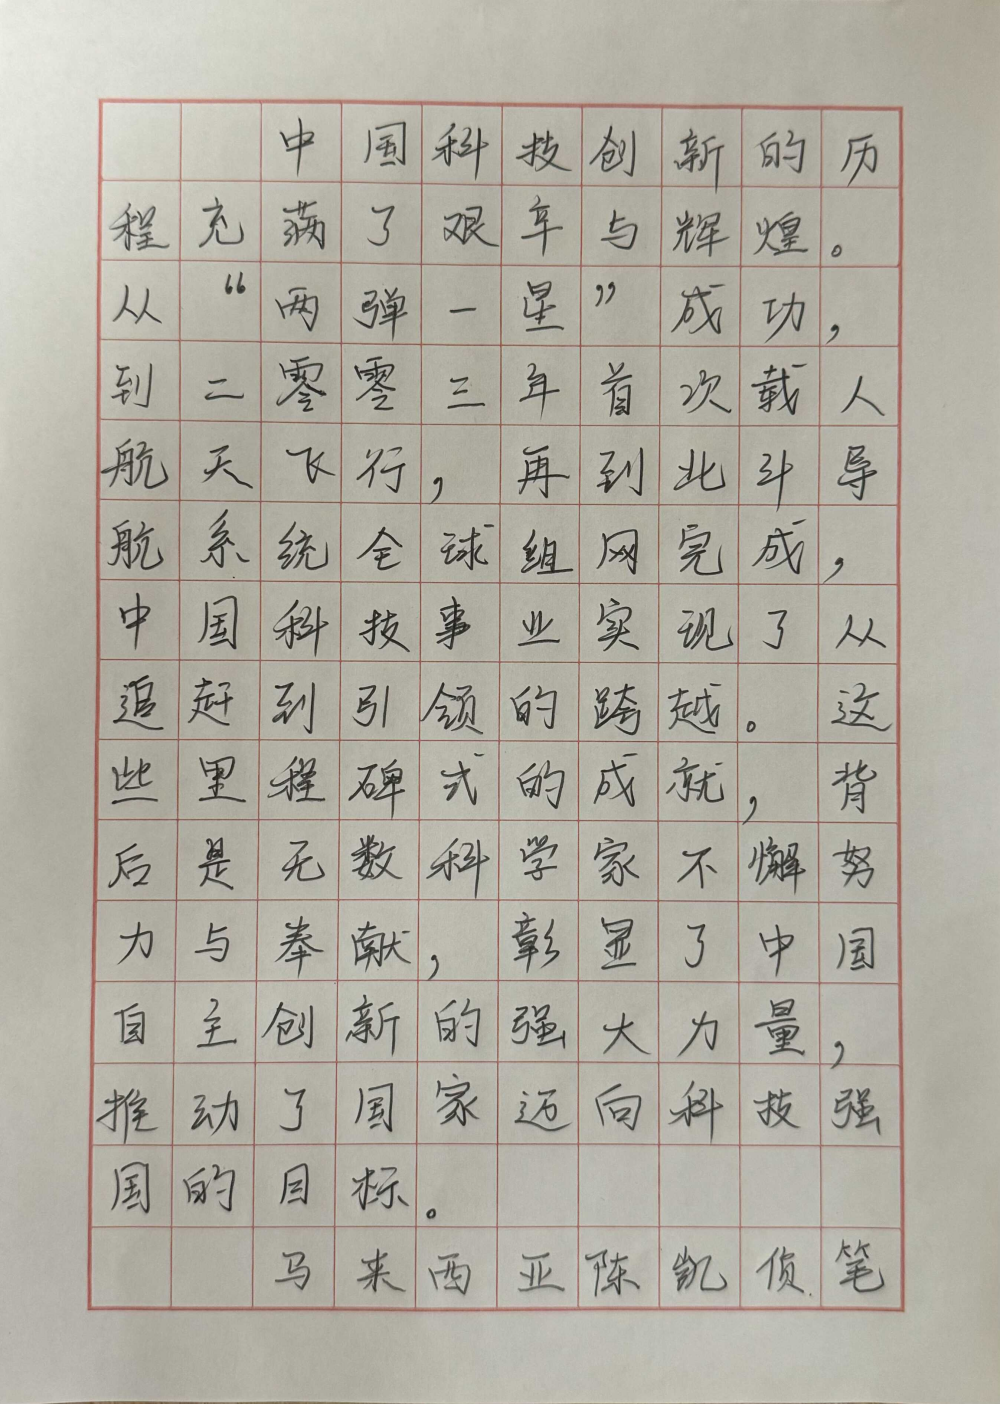 中国科技创新的历
程充满了艰辛与辉煌。
从“两弹一星”成功,
到二零零三年首次载人
航天飞行,再到北斗导
航系统全球组网完成,
中国科技事业实现了从
追赶到引领的跨越。这
些里程碑式的成就,背
后是无数科学家不懈努
力与奉献,彰显了中国
自主创新的强大力量,
推动了国家迈向科技强
国的目标。
马来西亚陈凯侦笔